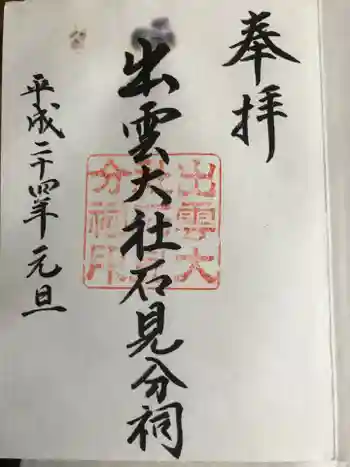 奉拝
出雲大社石見分祠
平成二十四年元旦
出雲大
社石見
分祠印